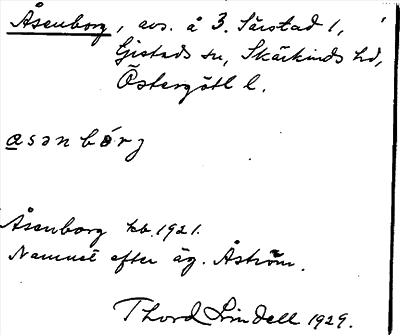 Åsenborg, avs. å 3. Särstad 1,
Gistads sn, Skärkinds hd,
Östergötl l.
asənbórj
Åsenborg kb. 1921.
Namnet efter äg. Åström.
Thord Lindell 1929.